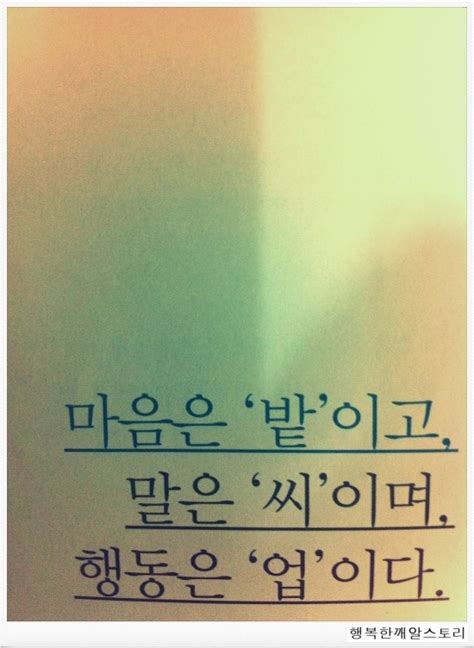 마음은 ‘밭’이고,
말은 ‘씨’이며,
행동은 ‘업’이다.
행복한깨알스토리